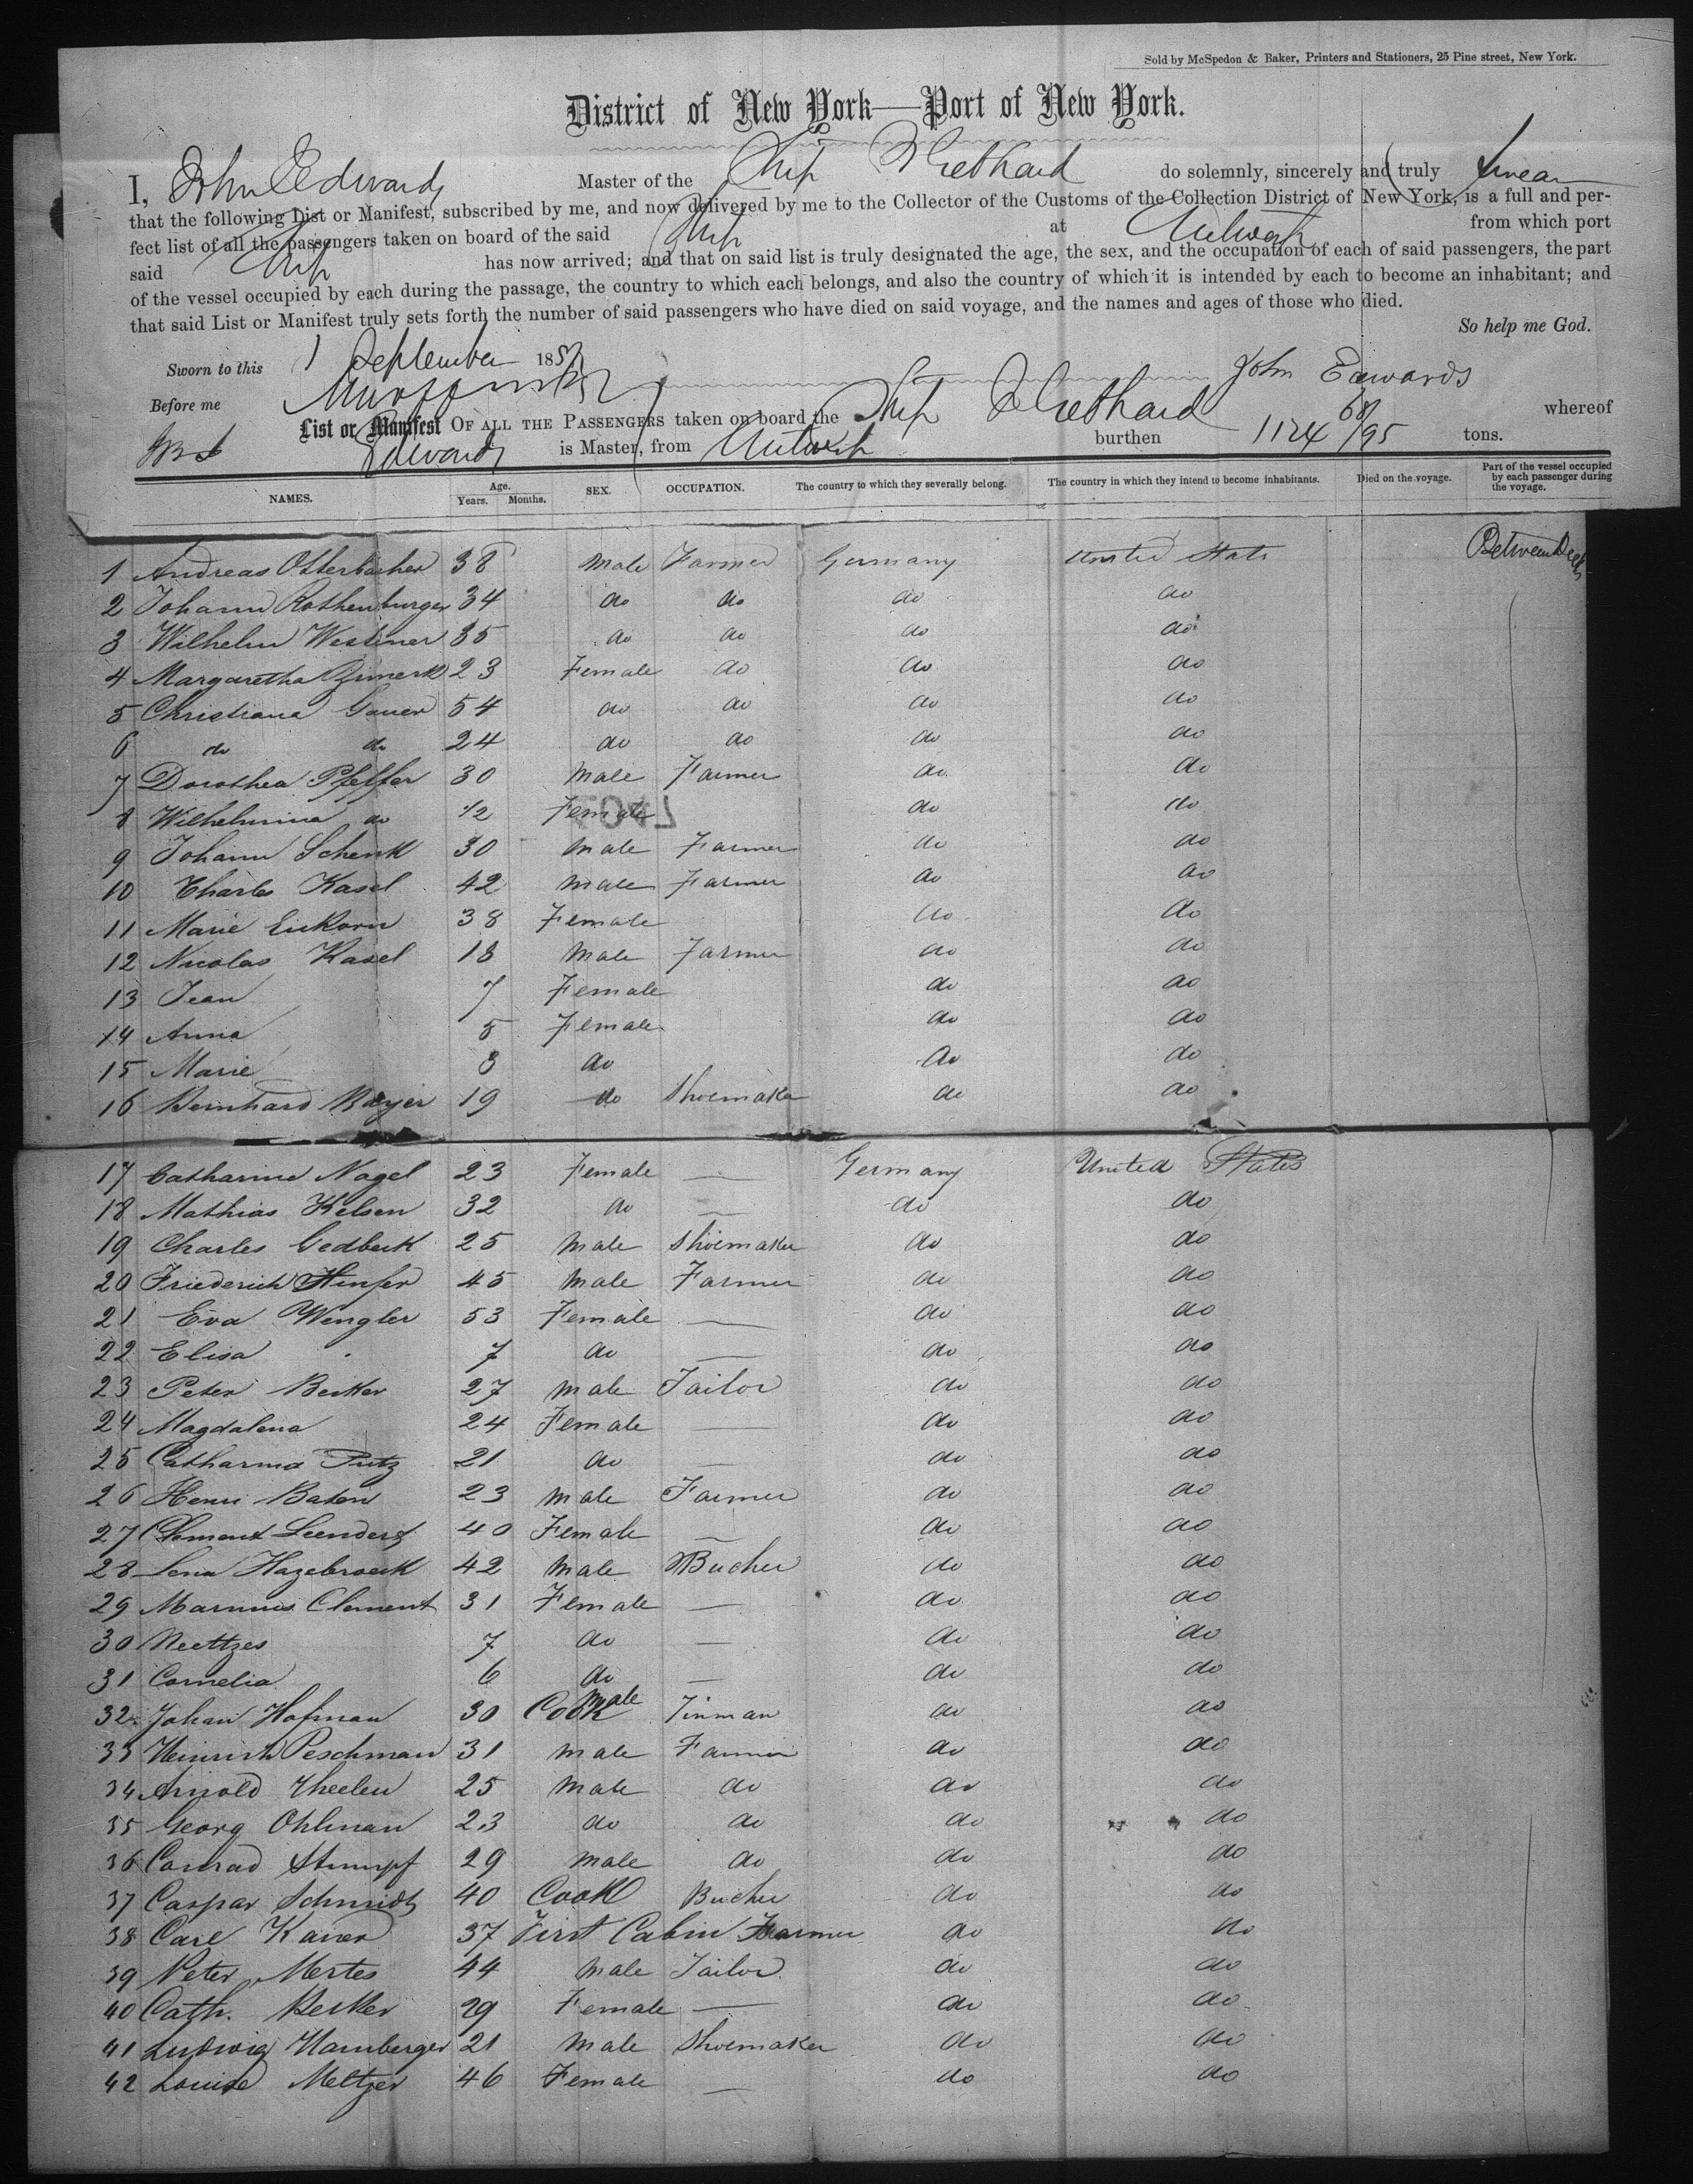 Sold by McSpedon & Baker, Printers and Stationers, 25 Pine street, New York.
District of New York—Port of New York.
I, John Edwards Master of the Ship F Gebhard do solemnly, sincerely and truly swear
that the following List or Manifest, subscribed by me, and now delivered by me to the Collector of the Customs of the Collection District of New York, is a full and per-
fect list of all the passengers taken on board of the said Ship at Antwerp from which port
said Ship has now arrived; and that on said list is truly designated the age, the sex, and the occupation of each of said passengers, the part
of the vessel occupied by each during the passage, the country to which each belongs, and also the country of which it is intended by each to become an inhabitant; and
that said List or Manifest truly sets forth the number of said passengers who have died on said voyage, and the names and ages of those who died.
So help me God.
Sworn to this 1 September 185
John Edwards
Before me
List or Manifest OF ALL THE PASSENGERS taken on board the Ship F Gebhard whereof
Edwards is Master, from Antwerp burthen 1124 68/95 tons.
NAMES. Age. Years. Months. SEX. OCCUPATION. The country to which they severally belong. The country in which they intend to become inhabitants. Died on the voyage. Part of the vessel occupied by each passenger during the voyage.
1 Andreas Otterbacher 38 Male Farmer Germany United State Between Deck
2 Johann Rothenburger 34 do do do do
3 Wilhelm Westmer 35 do do do do
4 Margaretha 23 Female do do do
5 Christiana Gauer 54 do do do do
6 do do 24 do do do do
7 Dorothea Pfeffer 30 Male Farmer do do
8 Wilhelmina do 1/2 Female do do
9 Johann Schenk 30 Male Farmer do do
10 Charles Kasel 42 Male Farmer do do
11 Marie Eickorn 38 Female do do
12 Nicolas Kasel 18 Male Farmer do do
13 Jean 7 Female do do
14 Anna 5 Female do do
15 Marie 3 do do do
16 Bernhard Beyer 19 do Shoemaker do do
17 Catharine Nagel 23 Female — Germany United States
18 Mathias Kelsen 32 do — do do
19 Charles Gedbeck 25 Male Shoemaker do do
20 Friederich 45 Male Farmer do do
21 Eva Wengler 53 Female — do do
22 Elisa 7 do — do do
23 Peter Becker 27 Male Tailor do do
24 Magdalena 24 Female — do do
25 Catharina Putz 21 do — do do
26 Henri Baton 23 Male Farmer do do
27 Clement Leendertz 40 Female — do do
28 Lena Hazebroeck 42 Male Bucher do do
29 Marinus Clement 31 Female — do do
30 Neettzes 7 do — do do
31 Cornelia 6 do — do do
32 Johan Hofman 30 Cook Male Tinman do do
33 Heinrich Peschman 31 Male Farmer do do
34 Arnold Theelen 25 Male do do do
35 Georg Ohlman 23 do do do do
36 Conrad Stumpf 29 Male do do do
37 Caspar Schmidt 40 Cook Bucher do do
38 Carl Kaner 37 First Cabin Farmer do do
39 Peter Mertes 44 Male Tailor do do
40 Cath. Becker 29 Female — do do
41 Ludwig Hamberger 21 Male Shoemaker do do
42 Louise Meltzer 46 Female — do do